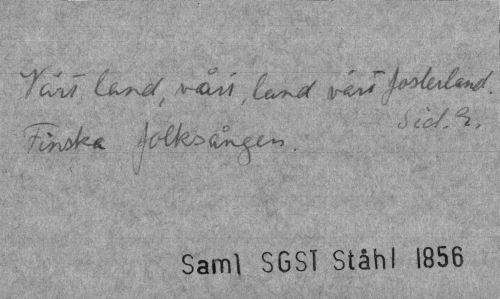 Vårt land, vårt, land vårt fosterland.
Sid. 2.
Finska folksången.
Saml SGST Ståhl 1856